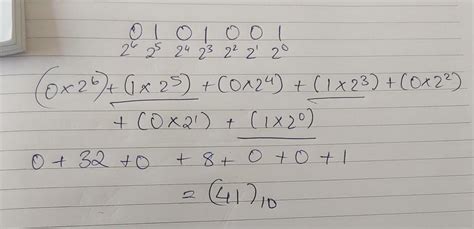 0 1 0 1 0 0 1
2⁶ 2⁵ 2⁴ 2³ 2² 2¹ 2⁰
(0×2⁶)+(1×2⁵)+(0×2⁴)+(1×2³)+(0×2²)
+(0×2¹)+(1×2⁰)
0+32+0+8+0+0+1
=(41)₁₀